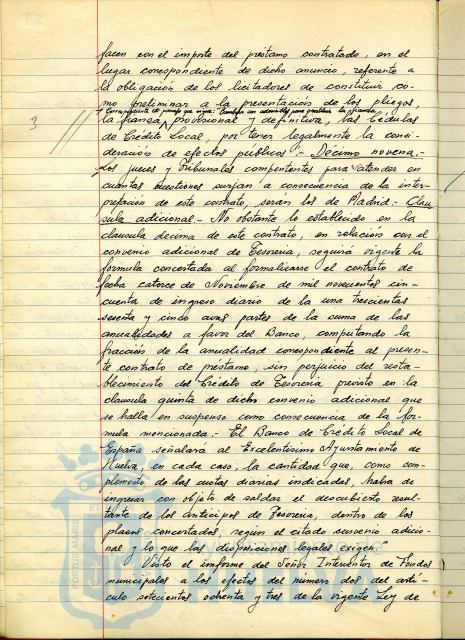 facen con el importe del préstamo contratado, en el
lugar correspondiente de dicho anuncio, referente a
la obligación de los licitadores de constituir, co-
mo preliminar a la presentación de los pliegos,
la fianza provisional y definitiva, las Cédulas
de Crédito Local, por tener legalmente la consi-
deración de efectos públicos.- Décimo novena.-
3
Los jueces y Tribunales competentes para entender en
cuantas cuestiones surjan a consecuencia de la inter-
pretación de este contrato, serán los de Madrid.- Clau-
sula adicional.- No obstante lo establecido en la
clausula decima de este contrato, en relación con el
convenio adicional de Tesorería, seguirá vigente la
formula concertada al formalizarse el contrato de
fecha catorce de Noviembre de mil novecientos cin-
cuenta de ingreso diario de la una trescientas
sesenta y cinco avas partes de la suma de las
anualidades a favor del Banco, computando la
fracción de la anualidad correspondiente al presen-
te contrato de préstamo, sin perjuicio del resta-
blecimiento del Crédito de Tesorería previsto en la
clausula quinta de dicho convenio adicional que
se halla en suspenso como consecuencia de la for-
mula mencionada.- El Banco de Crédito Local de
España señalará al Excelentísimo Ayuntamiento de
Huelva, en cada caso, la cantidad que, como com-
plemento de las cuotas diarias indicadas, haba de
ingresar con objeto de saldar el descubierto resul-
tante de los Anticipos de Tesorería, dentro de los
plazos concertados, según el citado convenio adicio-
nal y lo que las disposiciones legales exigen."
Visto el informe del Señor Interventor de Fondos
municipales a los efectos del número dos del arti-
culo setecientos ochenta y tres de la vigente Ley de